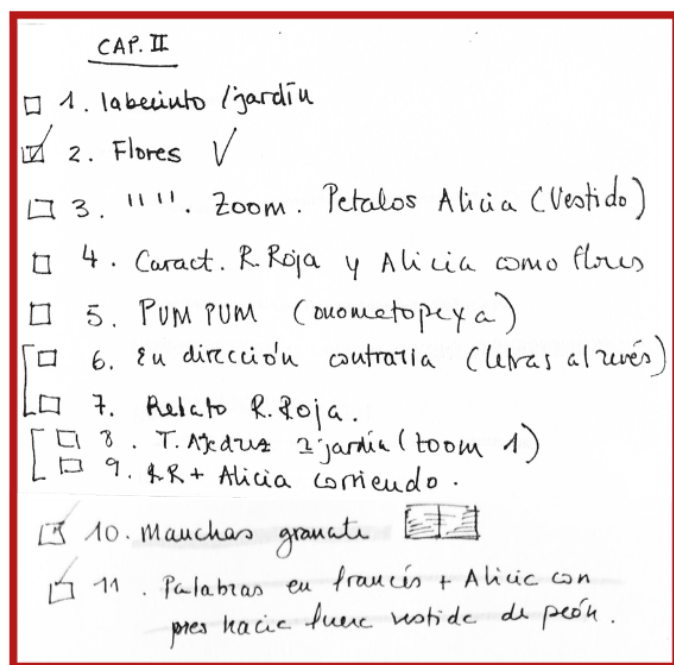 CAP. II
1. laberinto / jardín
2. Flores V
3. " ". Zoom. Petalos Alicia (Vestido)
4. Caract. R. Roja y Alicia como flores
5. PUM PUM (onometopeya)
6. En dirección contraria (letras al revés)
7. Relato R. Roja.
8. T. Ajedrez 2 jardín (zoom 1)
9. RR + Alicia corriendo.
10. Manchas granate
11. Palabras en francés + Alicia con
pies hacia fuera vestida de peón.